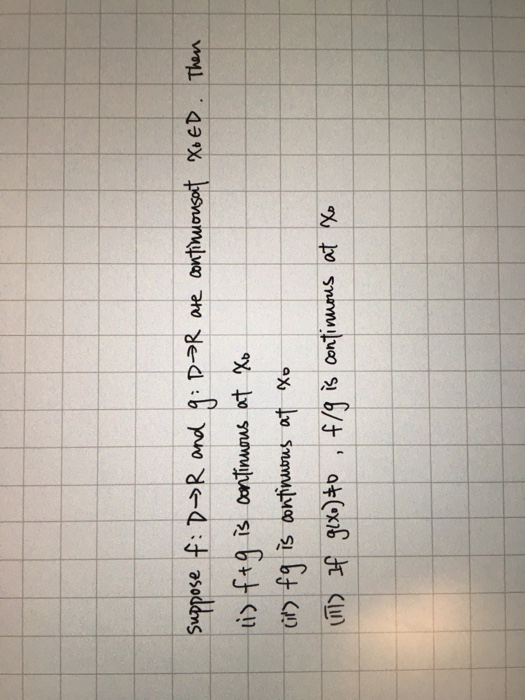 suppose f: D→R and g: D→R are continuousat x₀∈D. Then
(i) f+g is continuous at x₀
(ii) fg is continuous at x₀
(iii) If g(x₀)≠0, f/g is continuous at x₀